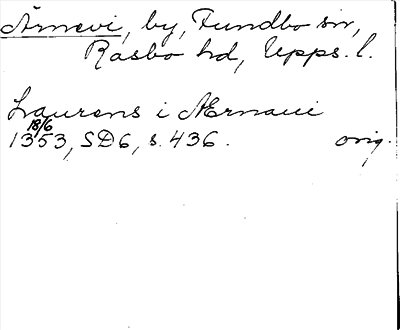 Årnevi, by, Funbo sn,
Rasbo hd, Upps. l.
Laurens i Ærnaui
18/6
1353, SD6, s. 436. orig.